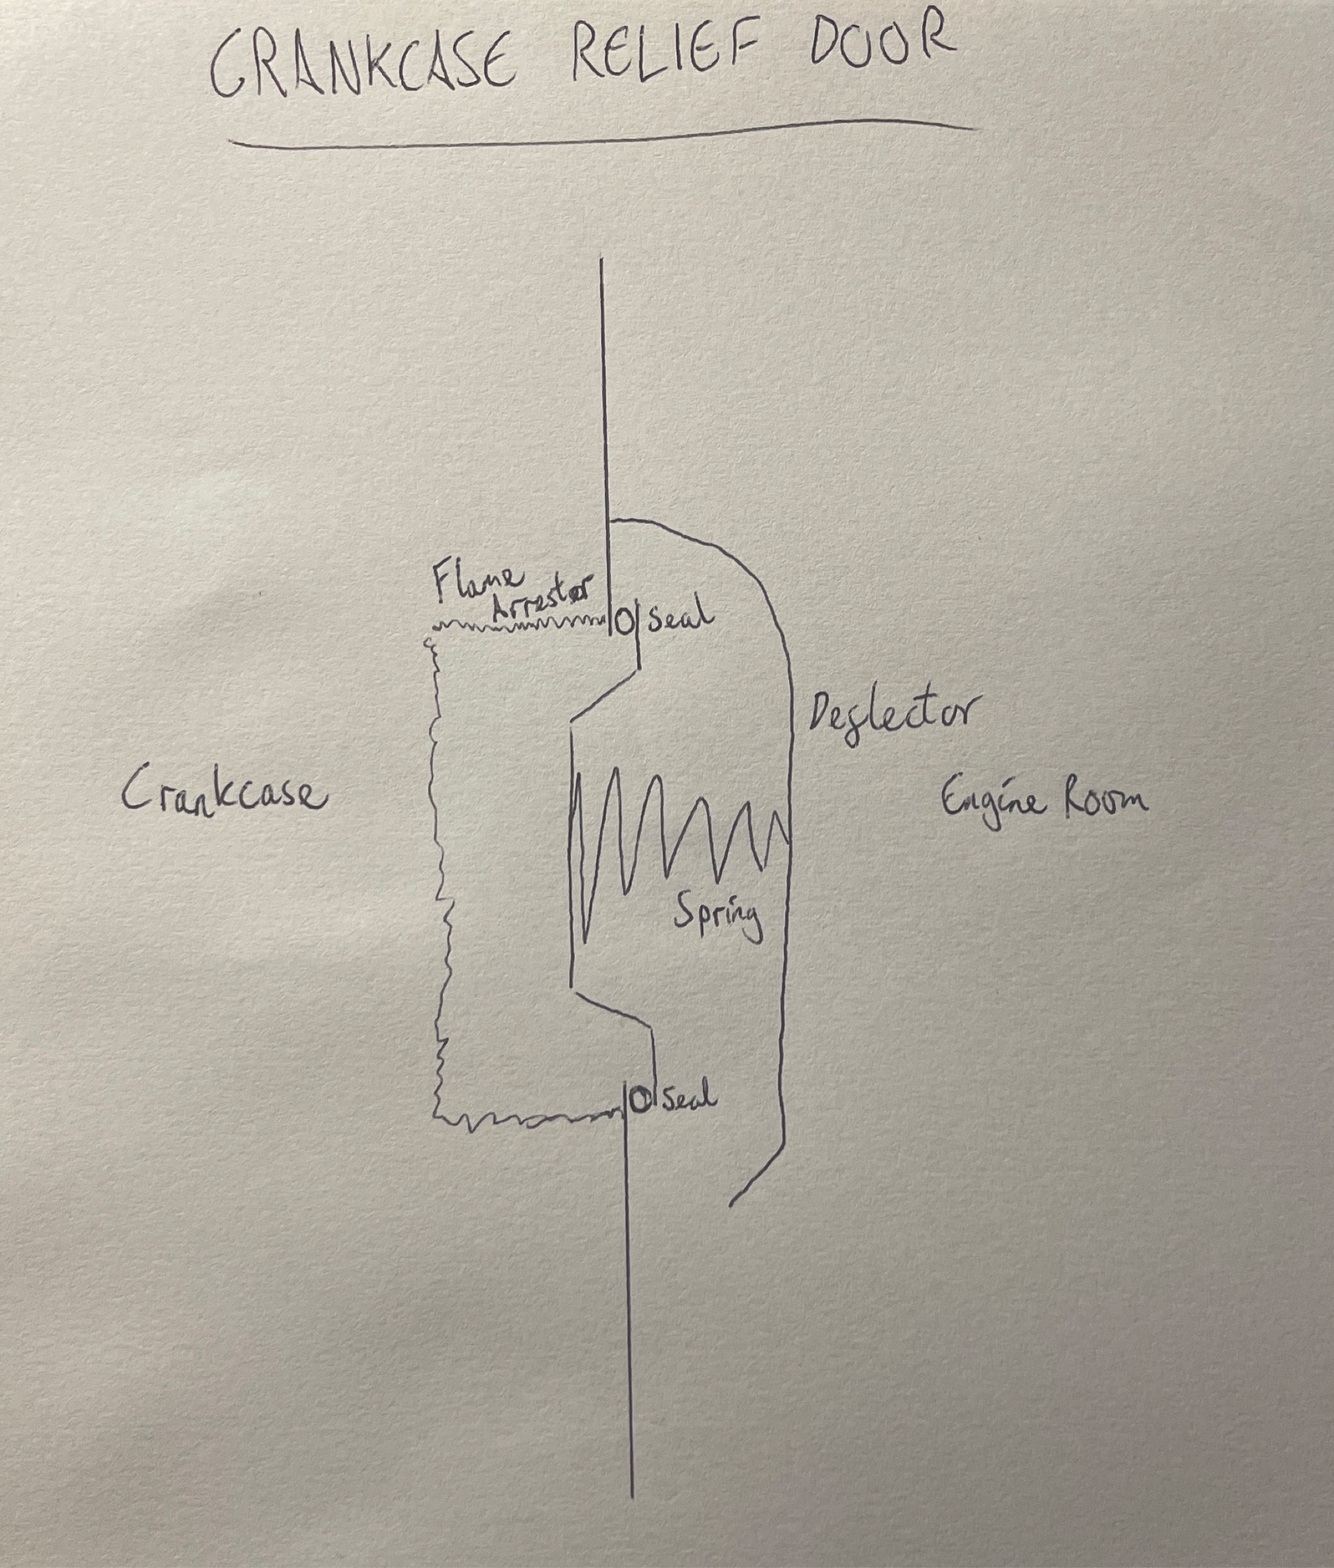 CRANKCASE RELIEF DOOR
Flame
Arrestor
Seal
Deflector
Crankcase
Engine Room
Spring
Seal